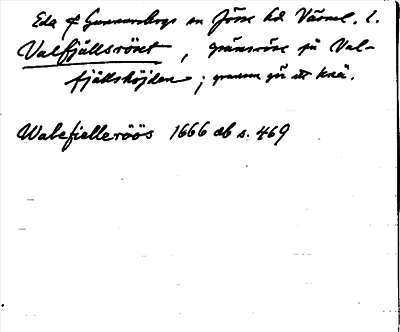 Eda sn Gunnarskogs sn Jösse hd Värml. l.
Valfjällsröset, gränsröse på Val-
fjällshöjden; granne på ett knä.
Walefielleröös 1666 ab s. 469